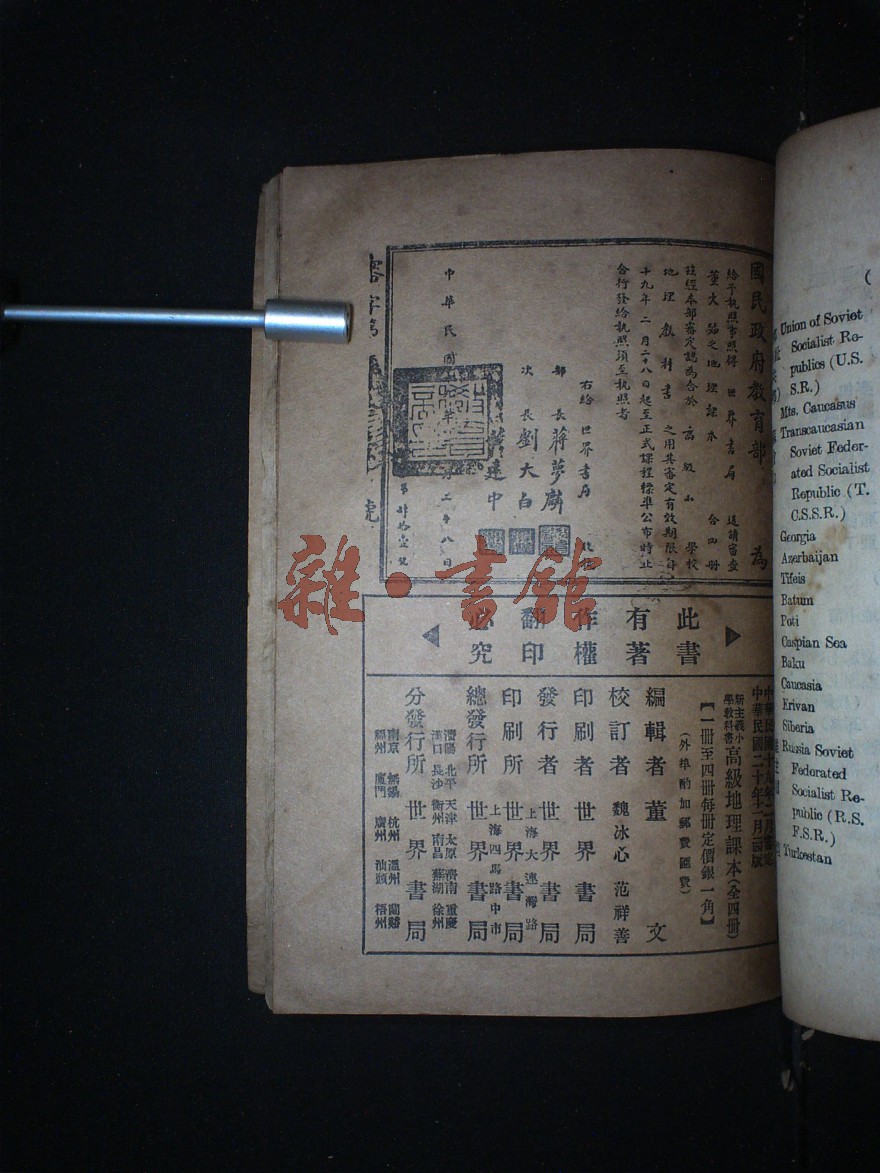 國民政府教育部 為
給予執照事照得 世界書局 送請審查
董文 編之地理課本 合四册
茲經本部審定認為合於 高級小 學校
地理教科書 之用其審定有效期限自
十九年二月二十八日起至正式課程標準公布時止
合行發給執照須至執照者
右給 世界書局 收花
部長 蔣夢麟
次長 劉大白
中華民國 年 月二十八日
審字第 號
此書
有著
作權
翻印
必究
中華民國十九年
中華民國二十年一月 版
新主義小學教科書 高級地理課本(全四册)
【一册至四册每册定價銀一角】
(外埠酌加郵費匯費)
編輯者 董文
校訂者 魏冰心 范祥善
印刷者 世界書局
發行者 世界書局
上海大連灣路
印刷所 世界書局
上海四馬路中市
總發行所 世界書局
瀋陽 北平 天津 太原 濟南 重慶
漢口 長沙 衡州 南昌 蕪湖 徐州
分發行所 世界書局
南京 無錫 杭州 溫州 蘭谿
福州 廈門 廣州 汕頭 梧州
雜·書館
(
Union of Soviet
Socialist Re-
publics (U.S.
S.R.)
Mts. Caucasus
Transcaucasian
Soviet Feder-
ated Socialist
Republic (T.
C.S.S.R.)
Georgia
Azerbaijan
Tifeis
Batum
Poti
Caspian Sea
Baku
Caucasia
Erivan
Siberia
Russia Soviet
Federated
Socialist Re-
public (R.S.
F.S.R.)
Turkestan